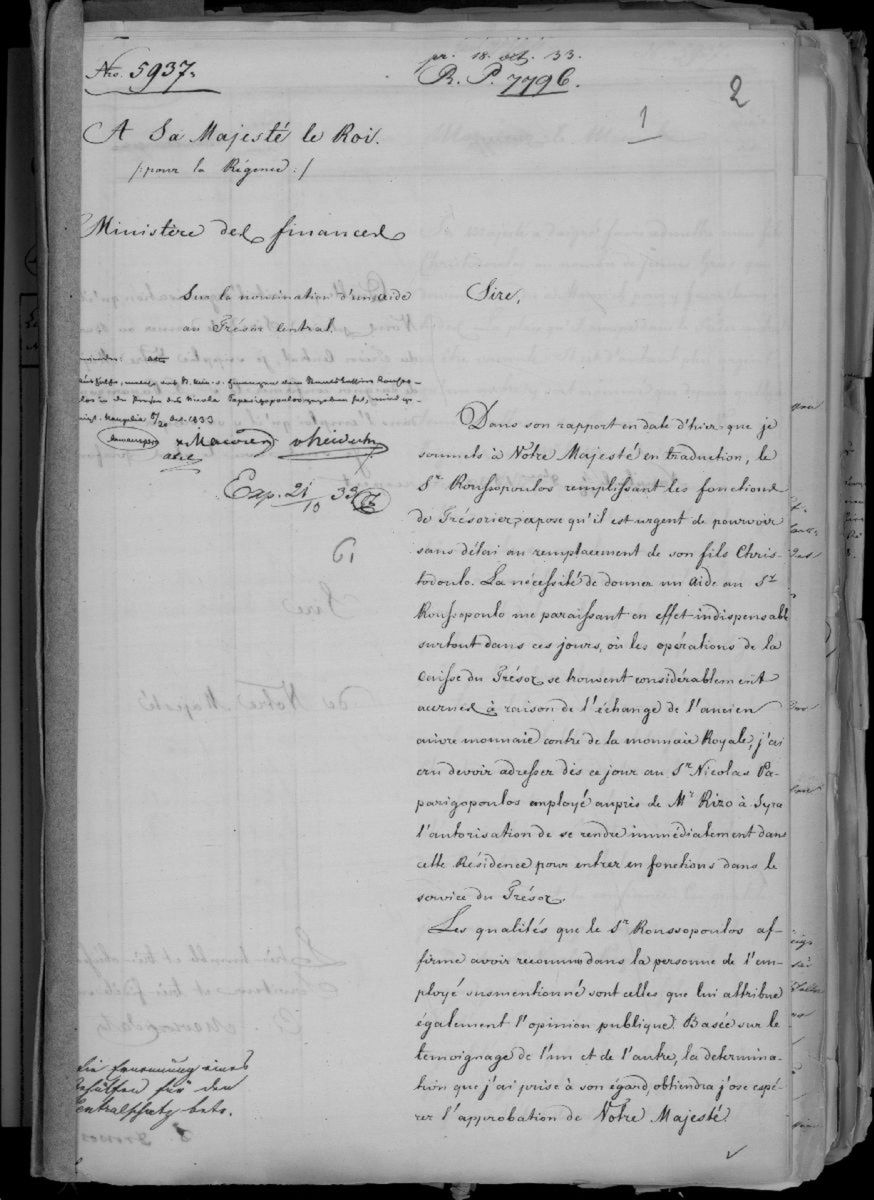 No. 5937.
pr. 18. oct. 33.
R. P. 7796.
2
1
A Sa Majesté le Roi.
/: pour la Régence :/
Ministère des finances
Sur la nomination d'un aide
au Trésor central.
Nauplia 8/20 Oct. 1833
Exp. 21/10 33
Sire,
Dans son rapport en date d'hier que je
soumets à Notre Majesté en traduction, le
Sr Roussopoulos remplissant les fonctions
de Trésorier, expose qu'il est urgent de pourvoir
sans délai au remplacement de son fils Chris-
todoulo. La nécessité de donner un aide au Sr
Roussopoulo me paraissant en effet indispensable
surtout dans ces jours, où les opérations de la
Caisse du Trésor se trouvent considérablement
accrues à raison de l'échange de l'ancien
cuivre monnaie contre de la monnaie Royale, j'ai
cru devoir adresser dès ce jour au Sr Nicolas Pa-
parigopoulos employé auprès de Mr Rizo à Syra
l'autorisation de se rendre immédiatement dans
cette Résidence pour entrer en fonctions dans le
service du Trésor.
Les qualités que le Sr Roussopoulos af-
firme avoir reconnu dans la personne de l'em-
ployé susmentionné sont celles que lui attribue
également l'opinion publique. Basée sur le
témoignage de l'un et de l'autre, la détermina-
tion que j'ai prise à son égard, obtiendra j'ose espé-
rer l'approbation de Notre Majesté.
die Ernennung eines
Gehülfen für den
Centralschatz betr.